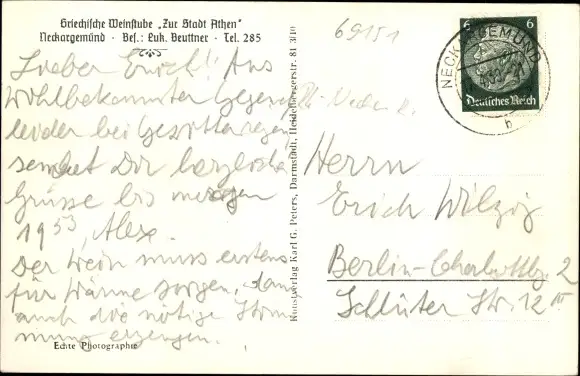 Griechische Weinstube „Zur Stadt Athen"
Neckargemünd · Bes.: Luk. Beuttner · Tel. 285
69151
Lieber Erich! Aus
wohlbekannter Gegend
leider bei
sendet Dir herzliche
Grüsse bis morgen
1953, Alex.
Der Wein muss erstens
für Wärme sorgen, dann
auch die nötige Stim
mung erzeugen.
Echte Photographie
Kunstverlag Karl G. Peters, Darmstadt, Heidelbergerstr. 81
6 6
Deutsches Reich
NECKARGEMÜND
b
Herrn
Erich Wilzig
Berlin-Charlottbg. 2
Schlüter Str. 12